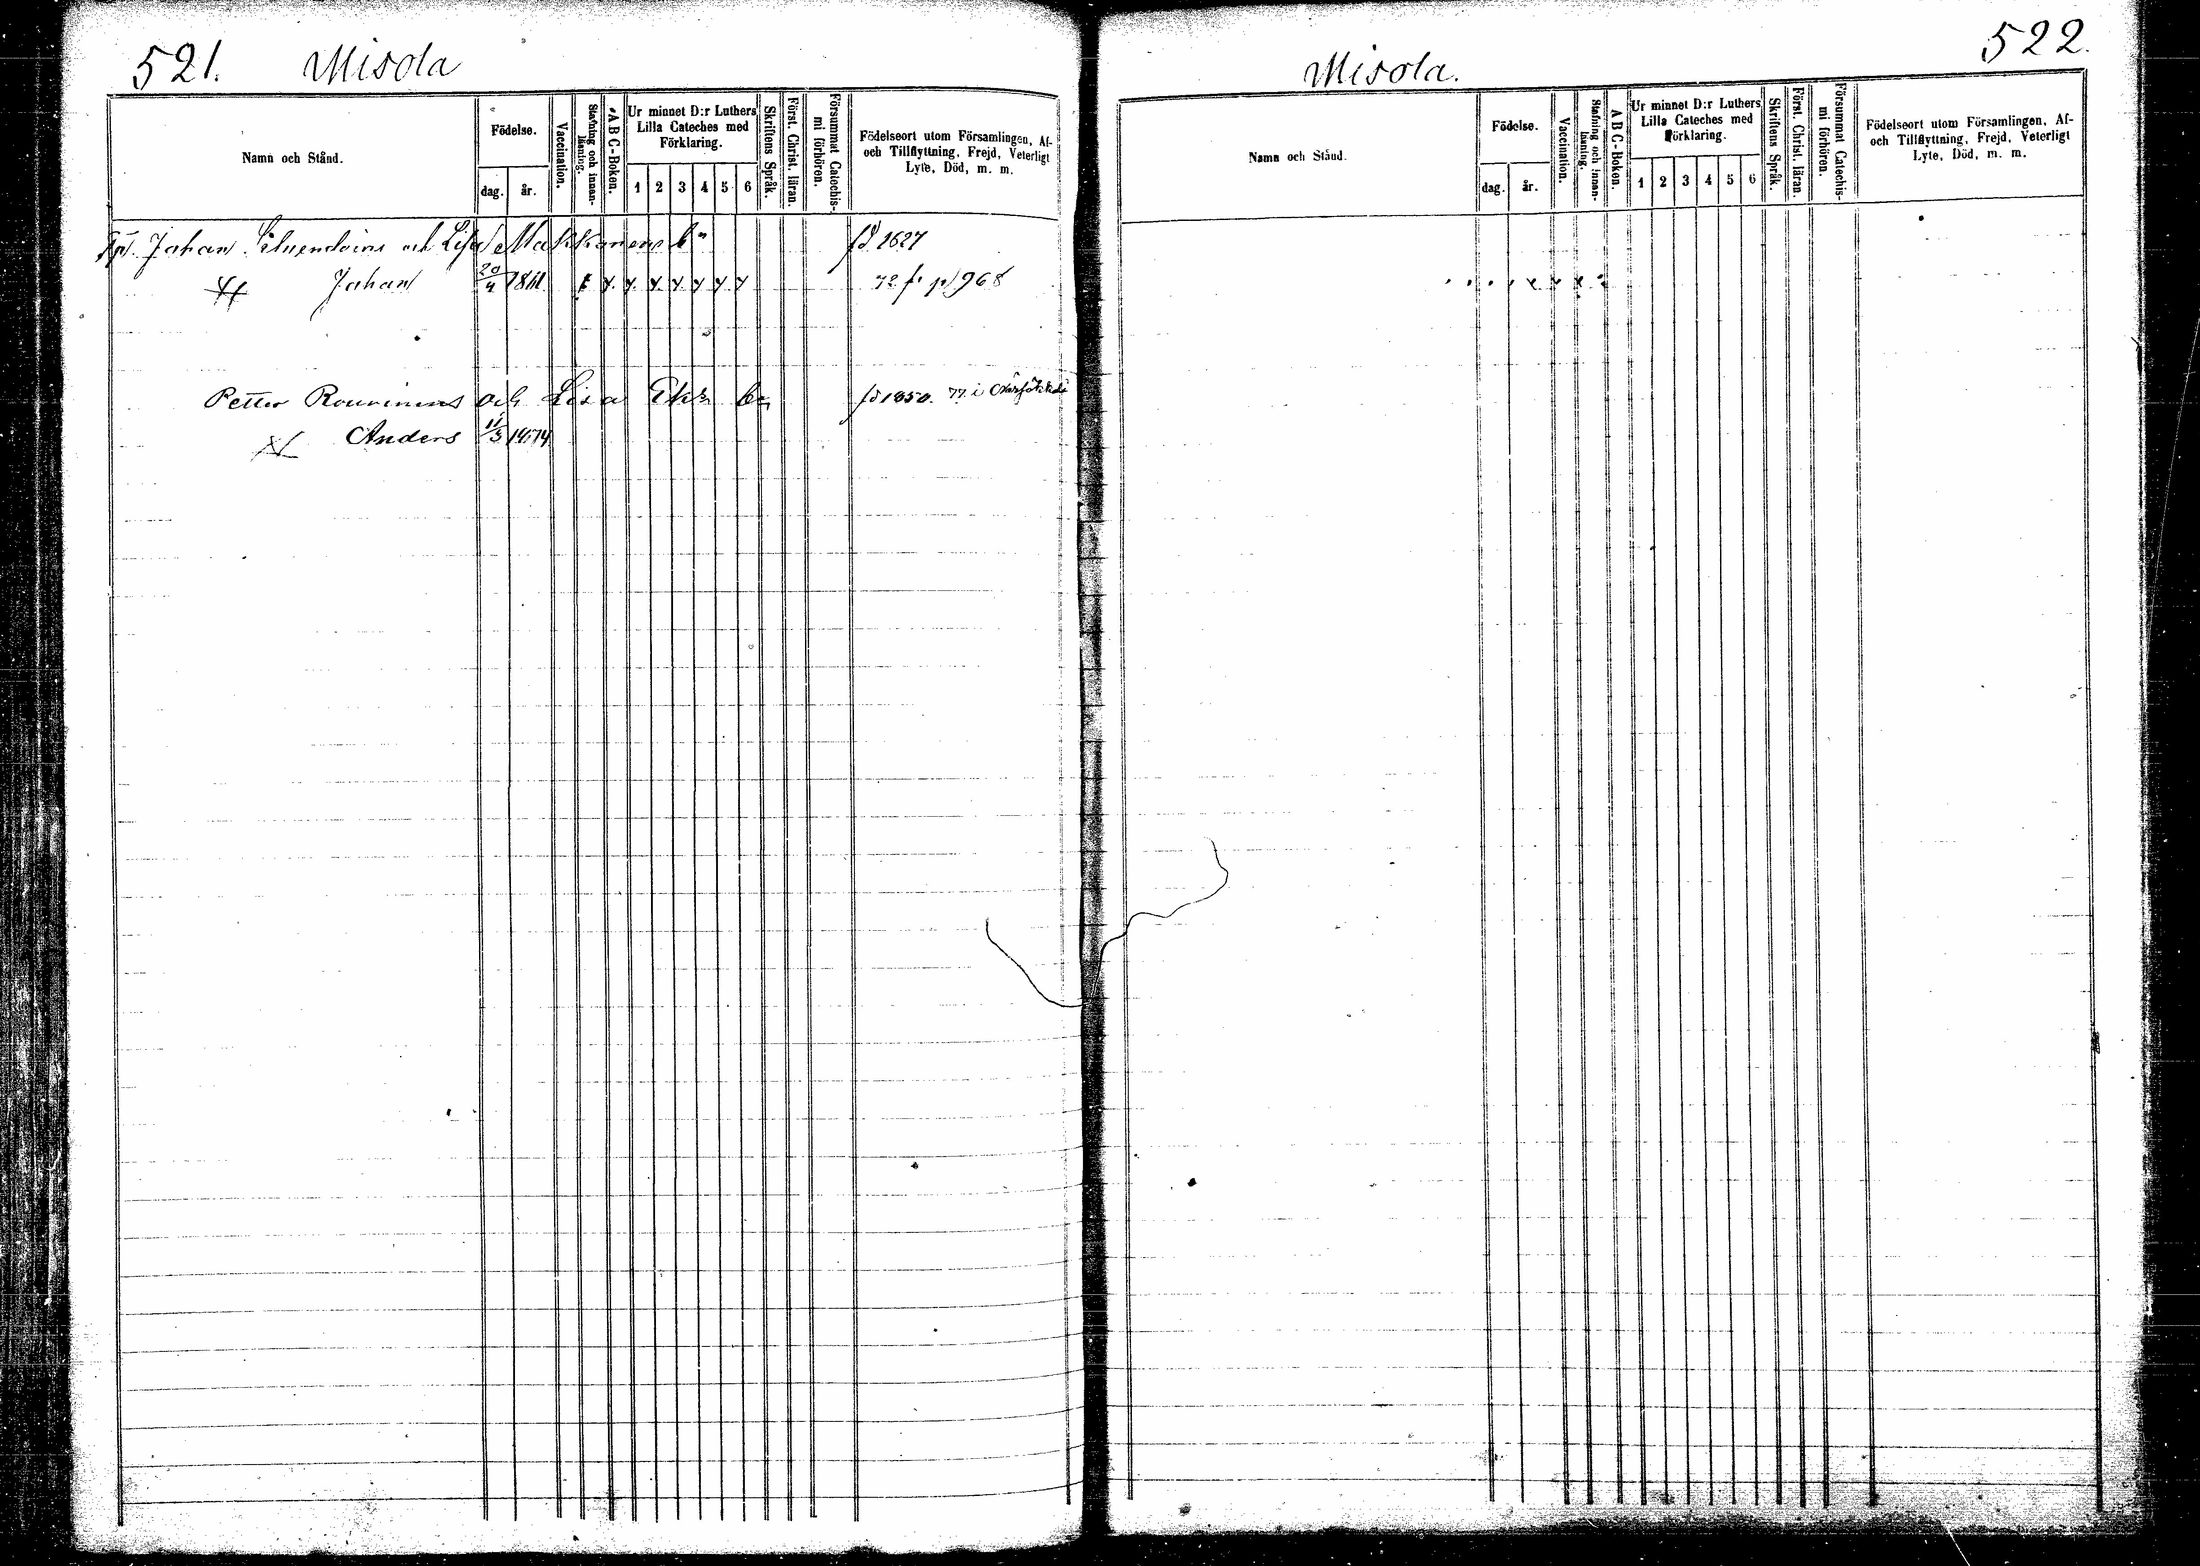 521. Misola
Namn och Stånd.
Födelse.
dag. år.
Vaccination.
Stafning och innan-läsning.
A B C-Boken.
Ur minnet D:r Luthers
Lilla Cateches med
Förklaring.
1 2 3 4 5 6
Skriftens Språk.
Först. Christ. läran.
Försummat Catechis-
mi förhören.
Födelseort utom Församlingen, Af-
och Tillflyttning, Frejd, Veterligt
Lyte, Död, m. m.
Johan och Lisa Makkonens bn
Johan 20/4 72 fr p 968
Petter Rouvinens och Lisa bn fd 1850. 77 i
Anders 11/3
Misola. 522.
Namn och Stånd.
Födelse.
dag. år.
Vaccination.
Stafning och innan-läsning.
A B C-Boken.
Ur minnet D:r Luthers
Lilla Cateches med
Förklaring.
1 2 3 4 5 6
Skriftens Språk.
Först. Christ. läran.
Försummat Catechis-
mi förhören.
Födelseort utom Församlingen, Af-
och Tillflyttning, Frejd, Veterligt
Lyte, Död, m. m.